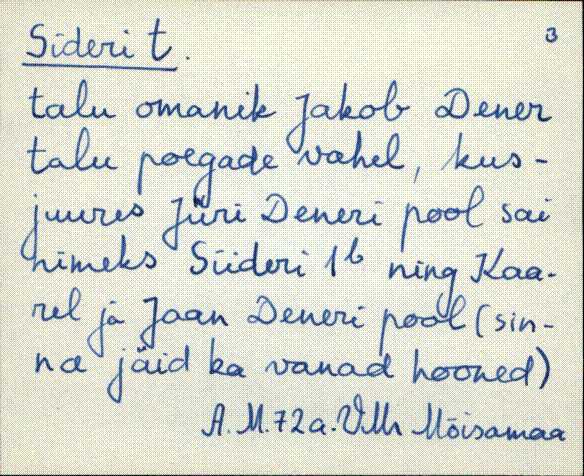 Sideri t. 3
talu omanik Jakob Dener
talu poegade vahel, kus-
juures Jüri Deneri pool sai
nimeks Siideri 1b ning Kaa-
rel ja Jaan Deneri pool (sin-
na jäid ka vanad hooned)
A.M. 72 a. VMr Mõisamaa